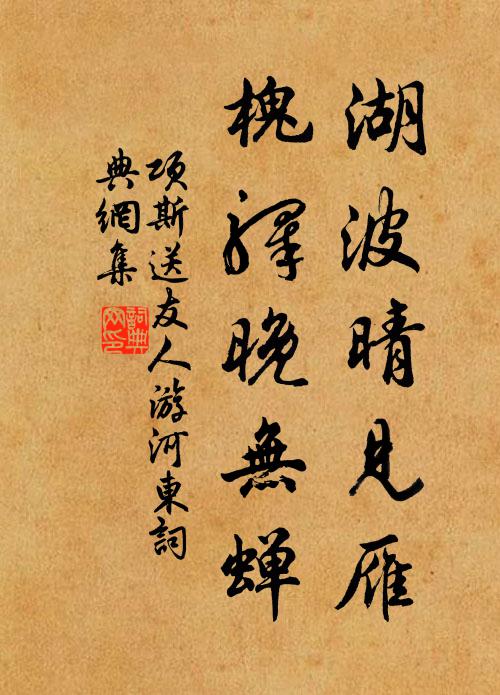 湖波晴見雁
槐驛晚無蟬
項斯送友人游河東詞
典網集
詞典
网印